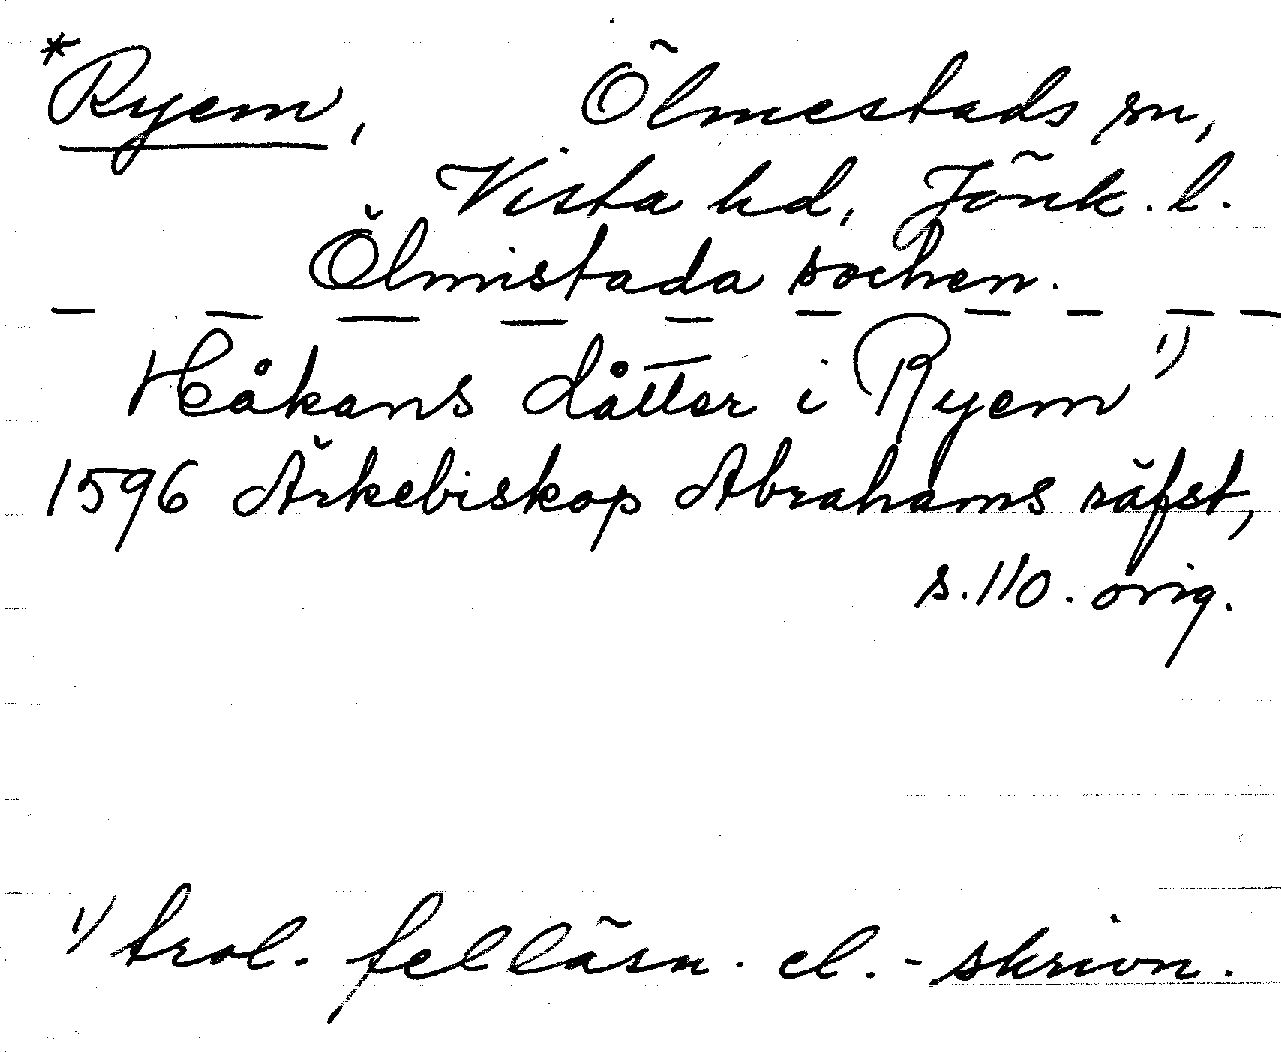 *Ryem, Ölmestads sn,
Vista hd, Jönk. l.
Ölmistada sochen.
Håkans dåtter i Ryem 1)
1596 Ärkebiskop Abrahams räfst,
s. 110. orig.
1) trol. felläsn. el. - skrivn.